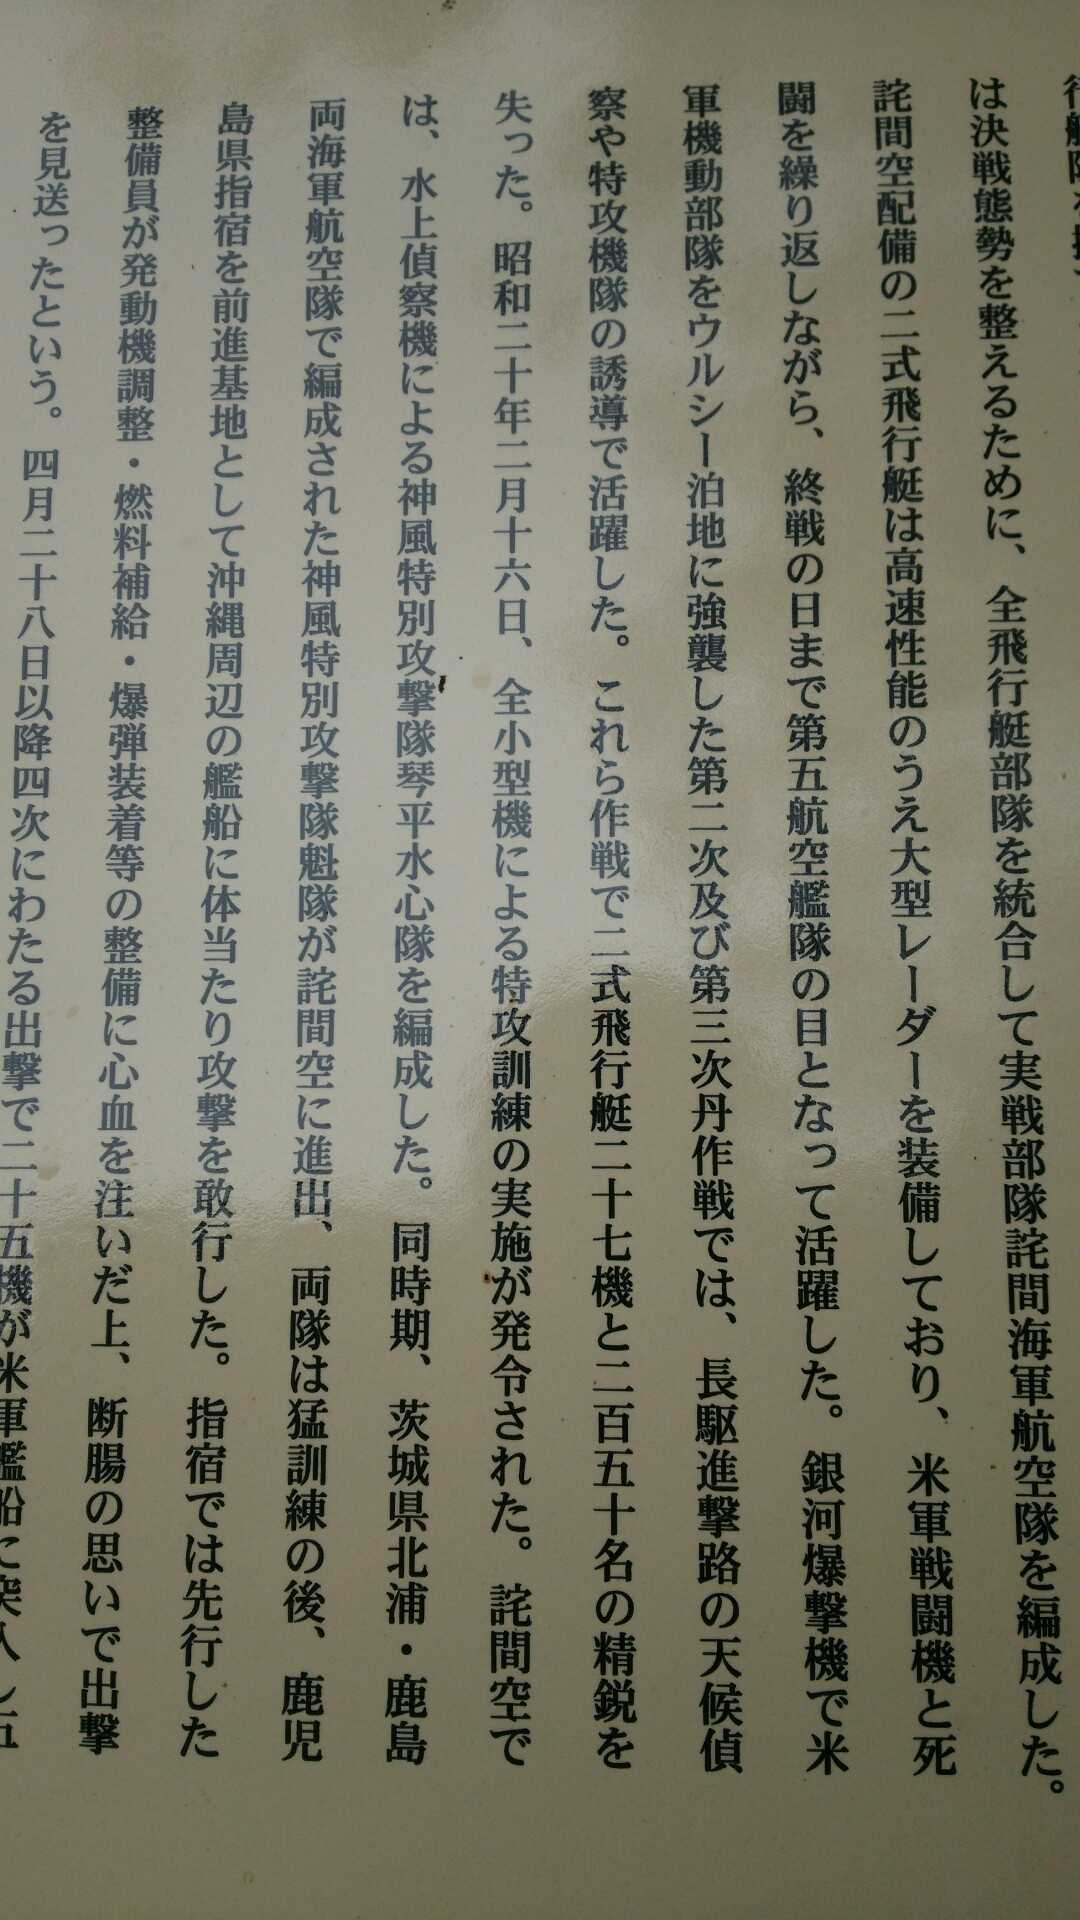 は決戦態勢を整えるために、全飛行艇部隊を統合して実戦部隊詫間海軍航空隊を編成した。
詫間空配備の二式飛行艇は高速性能のうえ大型レーダーを装備しており、米軍戦闘機と死
闘を繰り返しながら、終戦の日まで第五航空艦隊の目となって活躍した。銀河爆撃機で米
軍機動部隊をウルシー泊地に強襲した第二次及び第三次丹作戦では、長駆進撃路の天候偵
察や特攻機隊の誘導で活躍した。これら作戦で二式飛行艇二十七機と二百五十名の精鋭を
失った。昭和二十年二月十六日、全小型機による特攻訓練の実施が発令された。詫間空で
は、水上偵察機による神風特別攻撃隊琴平水心隊を編成した。同時期、茨城県北浦・鹿島
両海軍航空隊で編成された神風特別攻撃隊魁隊が詫間空に進出、両隊は猛訓練の後、鹿児
島県指宿を前進基地として沖縄周辺の艦船に体当たり攻撃を敢行した。指宿では先行した
整備員が発動機調整・燃料補給・爆弾装着等の整備に心血を注いだ上、断腸の思いで出撃
を見送ったという。四月二十八日以降四次にわたる出撃で二十五機が米軍艦船に突入し五